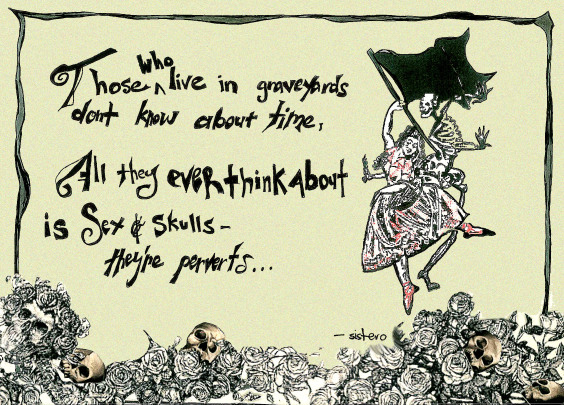 Those who live in graveyards
dont know about time,
All they ever think about
is Sex & Skulls -
they're perverts...
- sistero